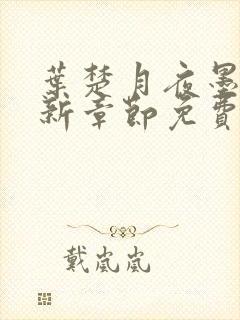 葉楚月夜墨
新章節免費
戴嵐嵐